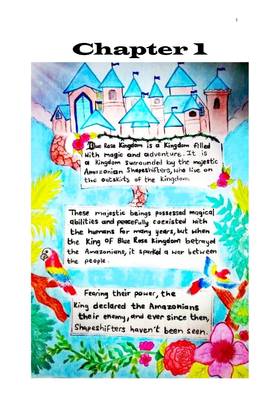 1
Chapter 1
Blue Rose Kingdom is a Kingdom filled
with magic and adventure. It is
a Kingdom surrounded by the majestic
Amazonian Shapeshifters, who live on
the outskirts of the Kingdom.
These majestic beings possessed magical
abilities and peacefully coexisted with
the humans for many years, but when
the King of Blue Rose Kingdom betrayed
the Amazonians, it sparked a war between
the people.
Fearing their power, the
King declared the Amazonians
their enemy, and ever since then,
Shapeshifters haven't been seen.